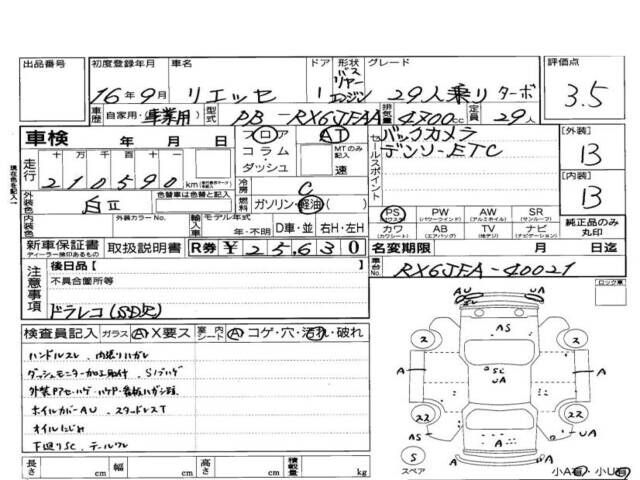 出品番号 初度登録年月 車名 ドア 形状 グレード 評価点
16年9月 リエッセ バスリヤーエンジン 29人乗りターボ 3.5
車歴 自家用・事業用 型式 PB-RX6JFAA 排気量 4700cc 定員 29人
車検 年 月 日 フロア AT バックカメラ 【外装】
コラム・ MTのみ記入 セールスポイント デンソーETC 13
走行 十万千百十 210590 km ダッシュ 速
現在色を記入→ 【内装】
外装色 白II 色替車は色替と記入 冷房 C 13
燃料 ガソリン・軽油
PS PW AW SR
(パワーウインド) (アルミホイル) (サンルーフ)
内装色 外装カラーNo. 輸入車 モデル年式 年・不明 D車・並 右H・左H
カワ AB TV ナビ 純正品のみ丸印
(カワシート) (エアバッグ) (テレビ) (ナビゲーション)
新車保証書 取扱説明書 R券 ¥25,630 名変期限 月 日迄
ディーラー捺印あるもの
注意事項 後日品【 車台No. RX6JFA-40021
不具合箇所等 ロック車
ドラレコ(SD欠)
検査員記入 ガラス A・X要ス 室内 シート A・コゲ・穴・汚れ・破れ
ハンドルスレ、内張りハガレ
ダッシュモニター加工取付、Sノブハゲ
ホイルカバーAU、スタッドレスT
オイルにじみ
下廻りSC、テールワレ
AU UA
AS
2 2
A SC A
UA
22 22
AS A UA
S
スペア 小A有・小U有
長さ cm 幅 cm 高さ cm 積載量 kg